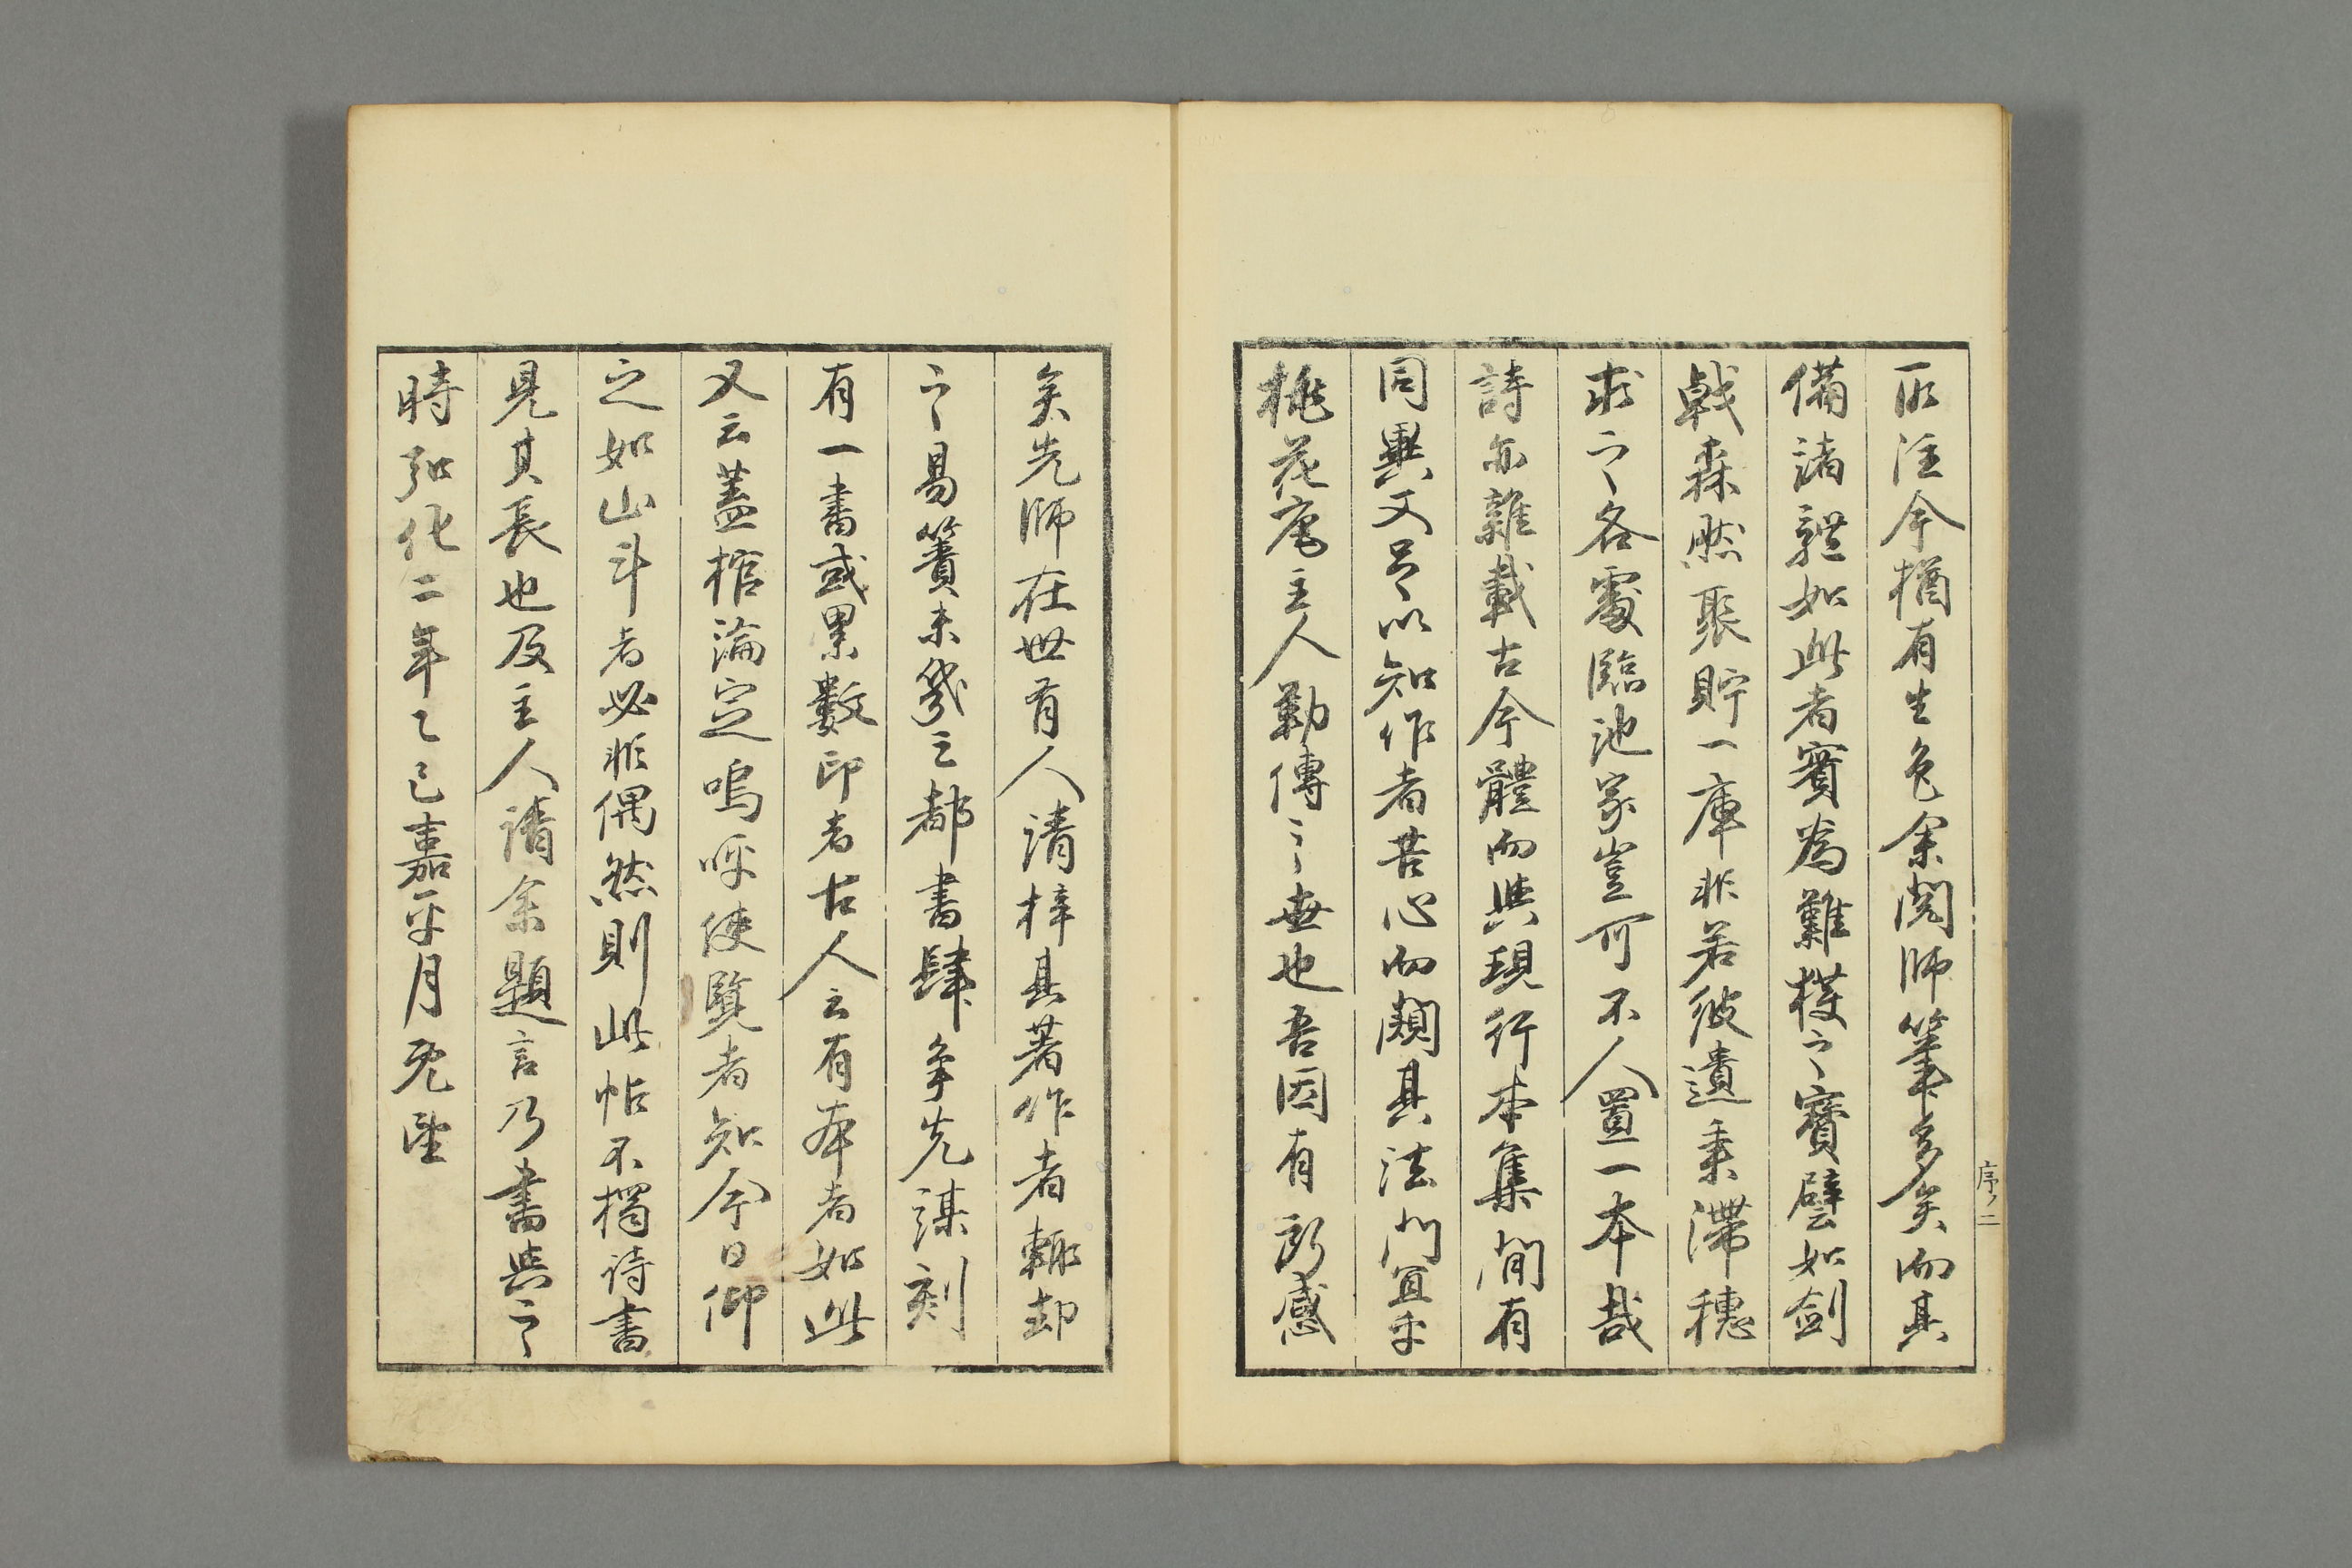 所注今猶有生色余閲師筆多矣而其
備諸體如此者實為難獲之寶譬如劍
戟森然聚貯一庫非若彼遺秉滯穗
求之各處臨池家豈可不人置一本哉
詩亦雜載古今體而與現行本集間有
同異又足以知作者苦心而顯其法門宜乎
桃花庵主人勒傳之世也吾因有所感
矣先師在世有人請梓其著作者輙却
之易簀未幾三都書肆爭先謀刻
有一書或累數印者古人云有本者如此
又云蓋棺論定嗚呼使覽者知今日仰
之如山斗者必非偶然則此帖不獨詩書
見其長也及主人請余題言乃書與之
時弘化二年乙巳嘉平月既望
序ノ二